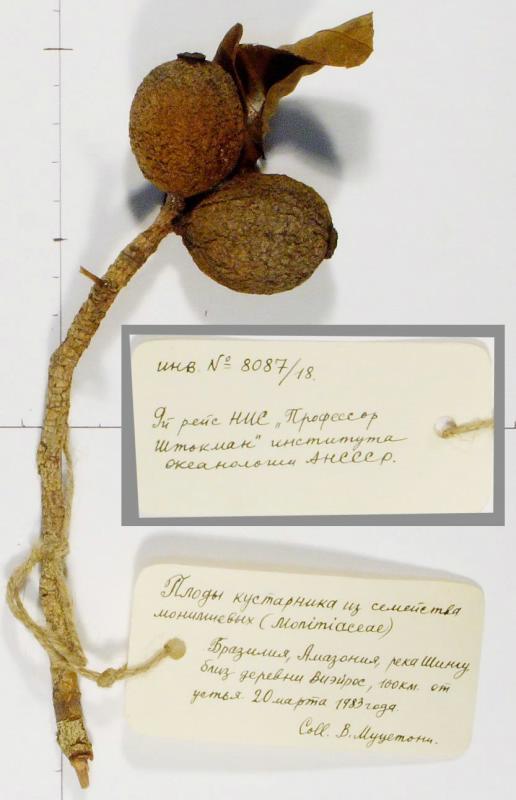 инв. № 8087/18.
9й рейс НИС „Профессор
Штокман" института
океанологии АНСССР.
Плоды кустарника из семейства
монимиевых (Monimiaceae)
Бразилия, Амазония, река Шингу
близ деревни Виэйрос, 100км. от
устья. 20 марта 1983 года.
Coll. В. Муцетони.